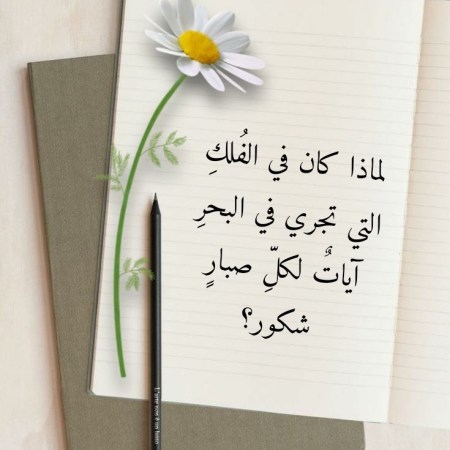 لماذا كان في الفُلكِ
التي تجري في البحرِ
آياتٌ لكلِّ صبارٍ
شكور؟